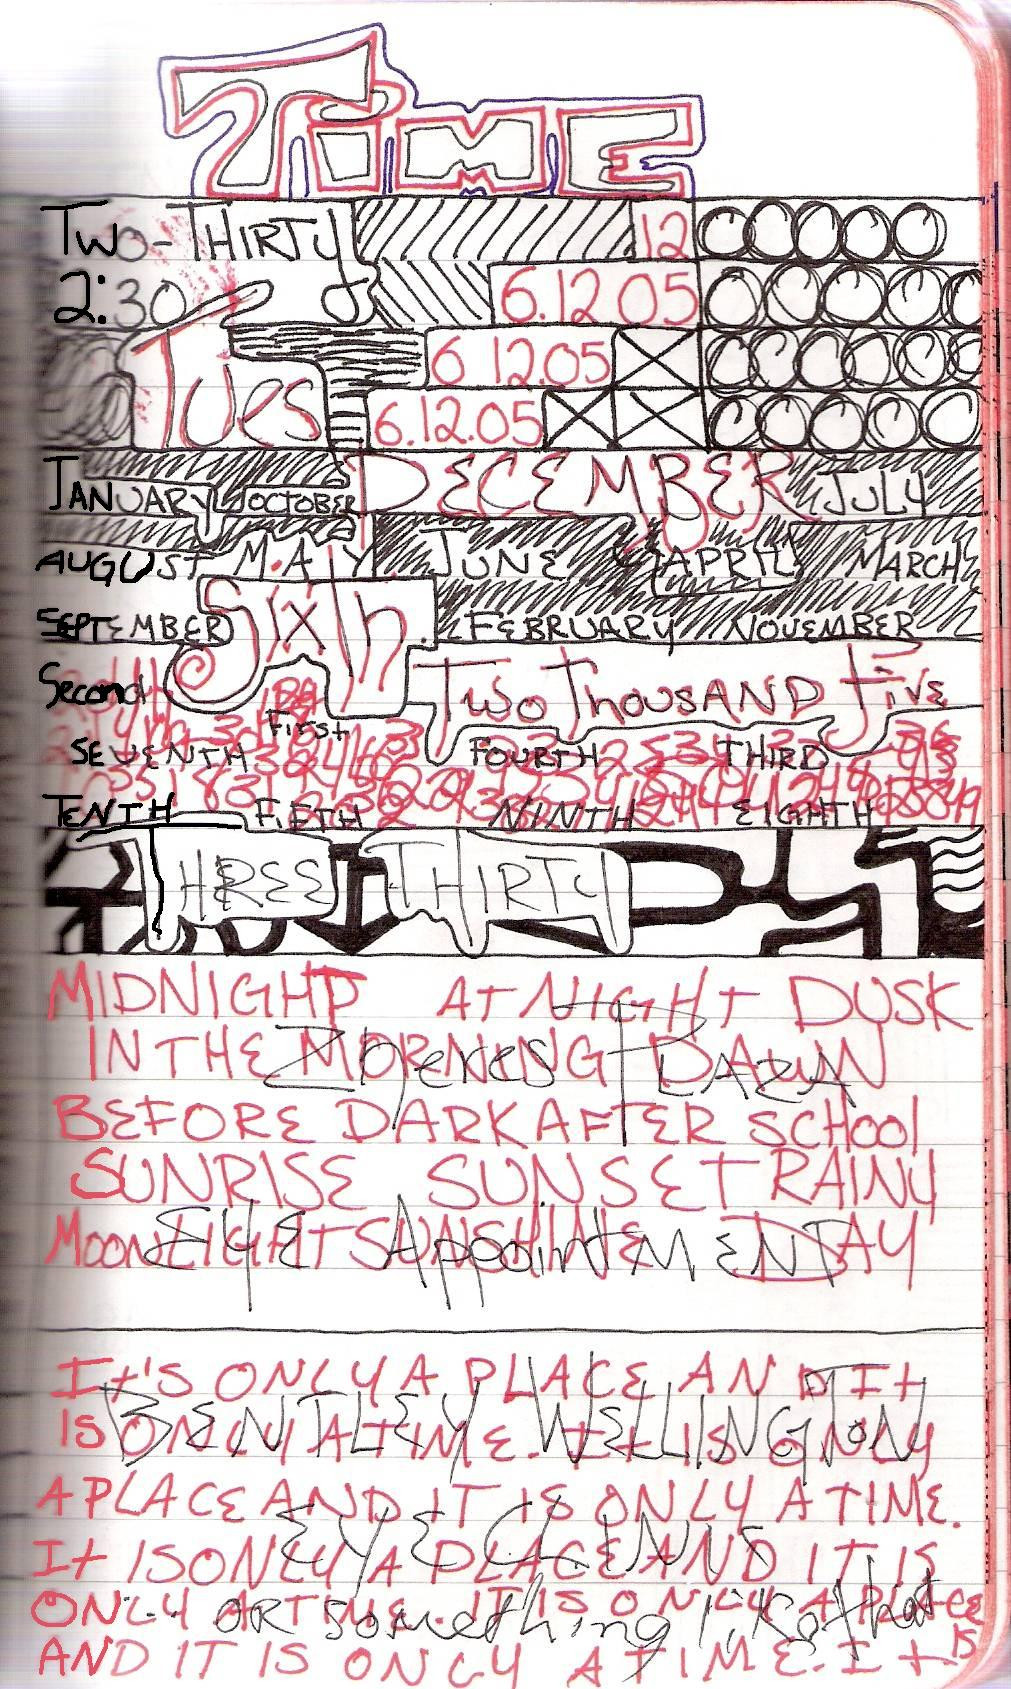 TIME
TWO-THIRTY 12
2:30 6.12 05
Tues 6 12.05
6.12.05
JANUARY OCTOBER DECEMBER JULY
AUGUST M.A.Y JUNE APRIL MARCH
SEPTEMBER SixTh. FEBRUARY NOVEMBER
Second Two ThousAND FiVE
First
SEVENTH FOURTH THIRD
TENTH FIFTH NINTH EIGHTH
THREE THIRTY
MIDNIGHT AT NIGHT DUSK
IN THE MORNING DAWN
PLAZA
BEFORE DARK AFTER SCHOOL
SUNRISE SUNSET RAINY
MOONLIGHT SUNSHINE DAY
EYE AppointmENT
It'S ONLY A PLACE AND It
IS ONLY A TIME. It IS ONLY
BENTLEY WELLINGTON
A PLACE AND IT IS ONLY A TIME.
EYE CLINIC
It IS ONLY A PLACE AND IT IS
ONLY A TIME. IT IS ONLY A PLACE
OR something like that
AND IT IS ONLY A TIME. It IS